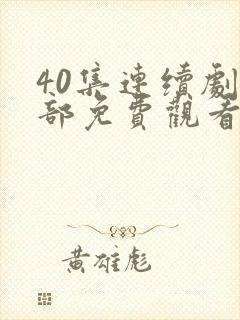 40集連續劇
部免費觀看
黃雄彪